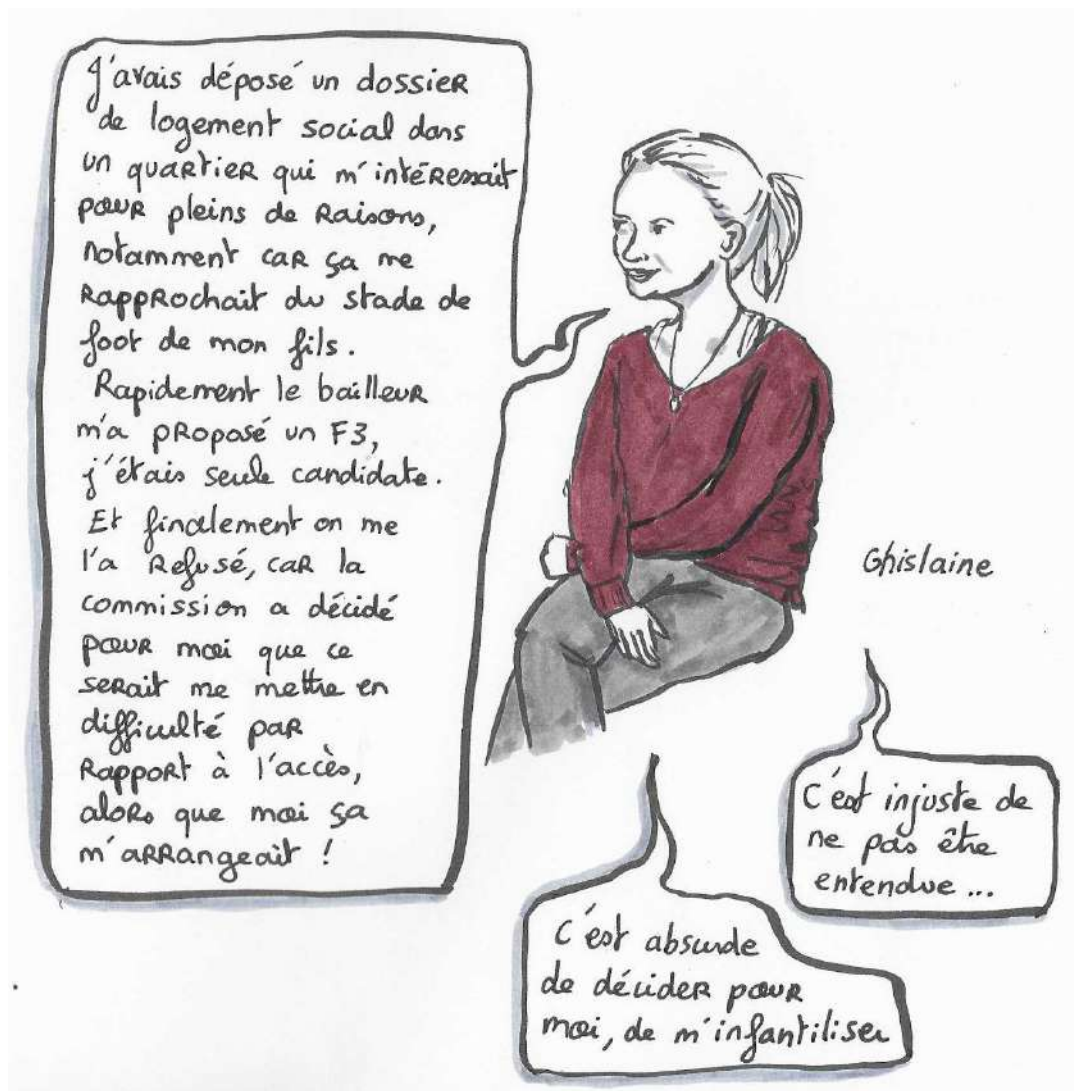 J'avais déposé un dossier
de logement social dans
un quartier qui m'intéressait
pour pleins de raisons,
notamment car ça me
rapprochait du stade de
foot de mon fils.
Rapidement le bailleur
m'a proposé un F3,
j'étais seule candidate.
Et finalement on me
l'a refusé, car la
commission a décidé
pour moi que ce
serait me mettre en
difficulté par
rapport à l'accès,
alors que moi ça
m'arrangeait !
Ghislaine
C'est injuste de
ne pas être
entendue ...
C'est absurde
de décider pour
moi, de m'infantiliser